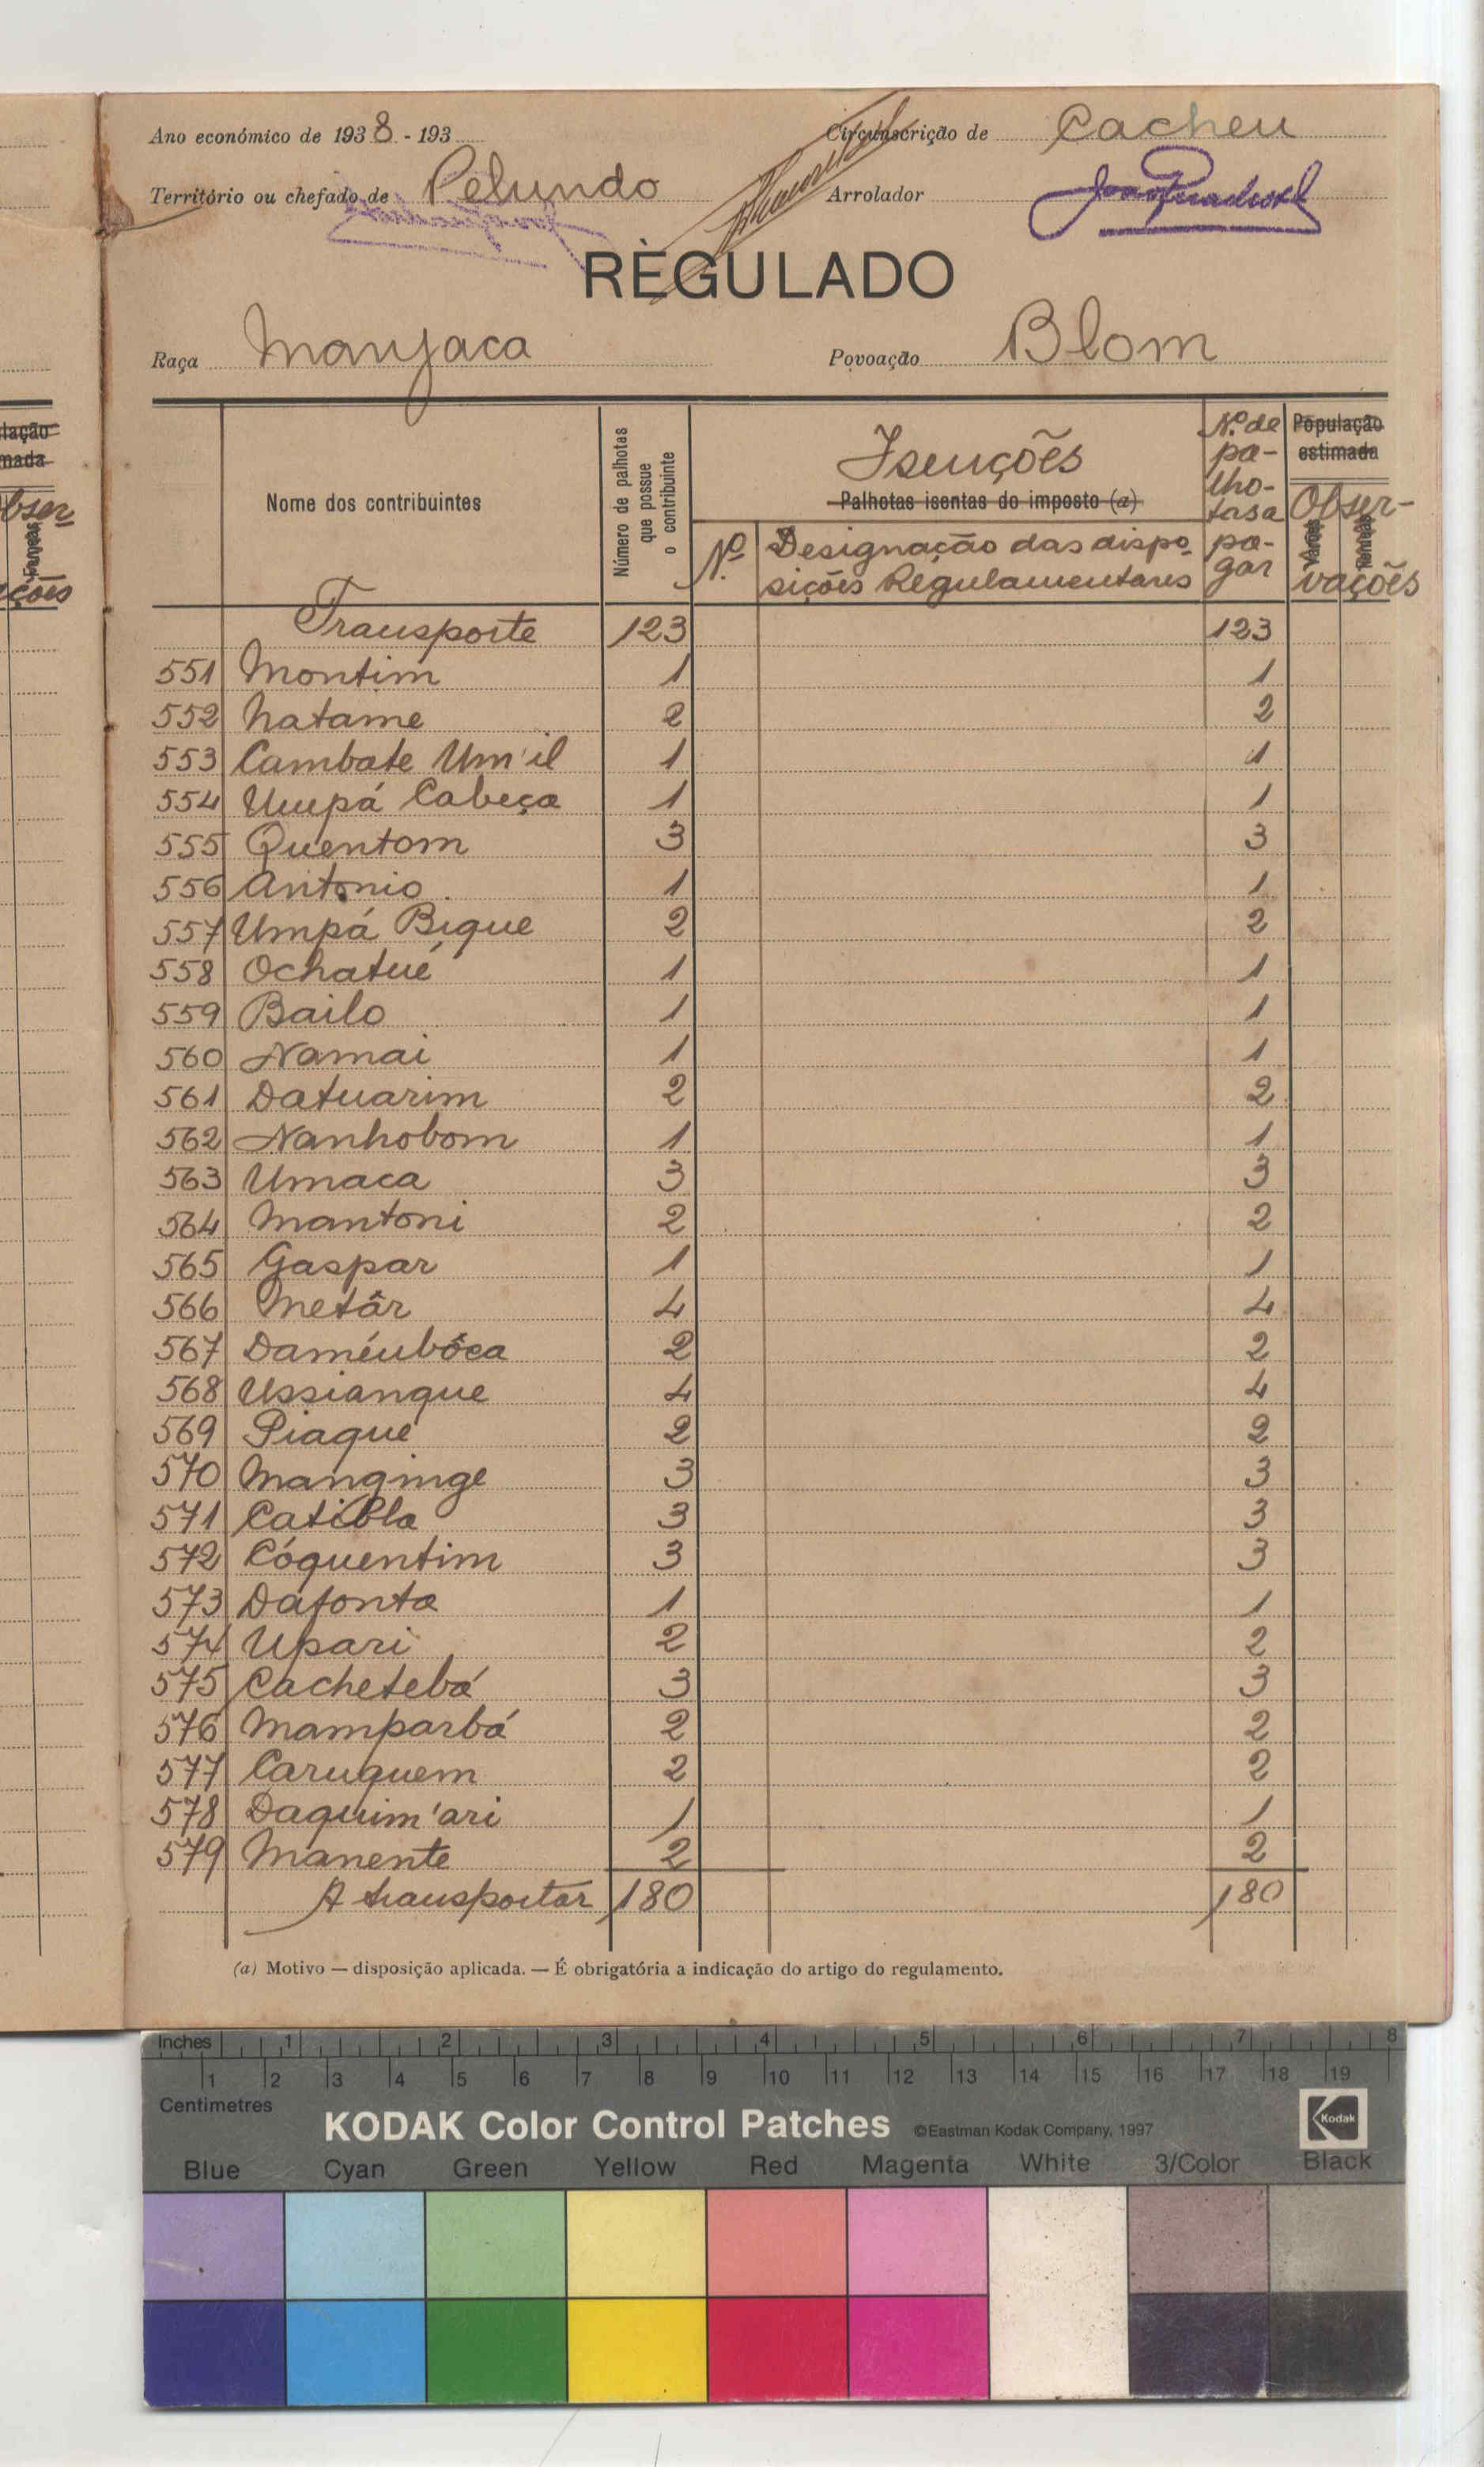 Ano económico de 1938 - 193
Circunscrição de Cacheu
Território ou chefado de Pelundo
Arrolador
REGULADO
Raça Manjaca
Povoação Blom
Nome dos contribuintes
Número de palhotas que possue o contribuinte
Isenções
Palhotas isentas do imposto (a)
Nº
Designação das disposições Regulamentares
Nº de palhotas a pagar
População estimada
Observações
Transporte 123 123
551 Montim 1 1
552 Natame 2 2
553 Cambate Um'il 1 1
554 Umpá Cabeça 1 1
555 Quentom 3 3
556 Antonio 1 1
557 Umpá Bique 2 2
558 Ochatué 1 1
559 Bailo 1 1
560 Namai 1 1
561 Datuarim 2 2
562 Nanhobom 1 1
563 Umaca 3 3
564 Mantoni 2 2
565 Gaspar 1 1
566 Metâr 4 4
567 Daméubóca 2 2
568 Ussianque 4 4
569 Piaque 2 2
570 Manginge 3 3
571 Catibla 3 3
572 Cóquentim 3 3
573 Dafonta 1 1
574 Upari 2 2
575 Cachetebá 3 3
576 Mamparbá 2 2
577 Caruquem 2 2
578 Daquim'ari 1 1
579 Manente 2 2
A transportar 180 180
(a) Motivo — disposição aplicada. — É obrigatória a indicação do artigo do regulamento.
Inches 1 2 3 4 5 6 7 8
1 2 3 4 5 6 7 8 9 10 11 12 13 14 15 16 17 18 19
Centimetres
KODAK Color Control Patches ©Eastman Kodak Company, 1997 Kodak
Blue Cyan Green Yellow Red Magenta White 3/Color Black